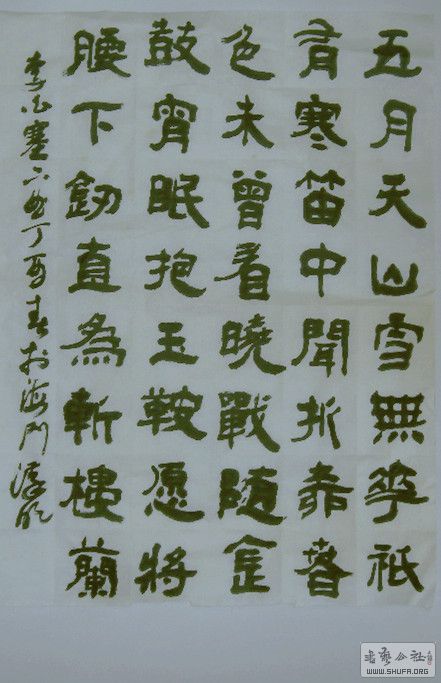 五月天山雪無華祇
有寒笛中聞折柳春
色未曾看曉戰隨金
鼓宵眠抱玉鞍愿將
腰下劒直為斬樓蘭
李白塞下曲丁酉春於海門
书艺公社
WWW.SHUFA.ORG